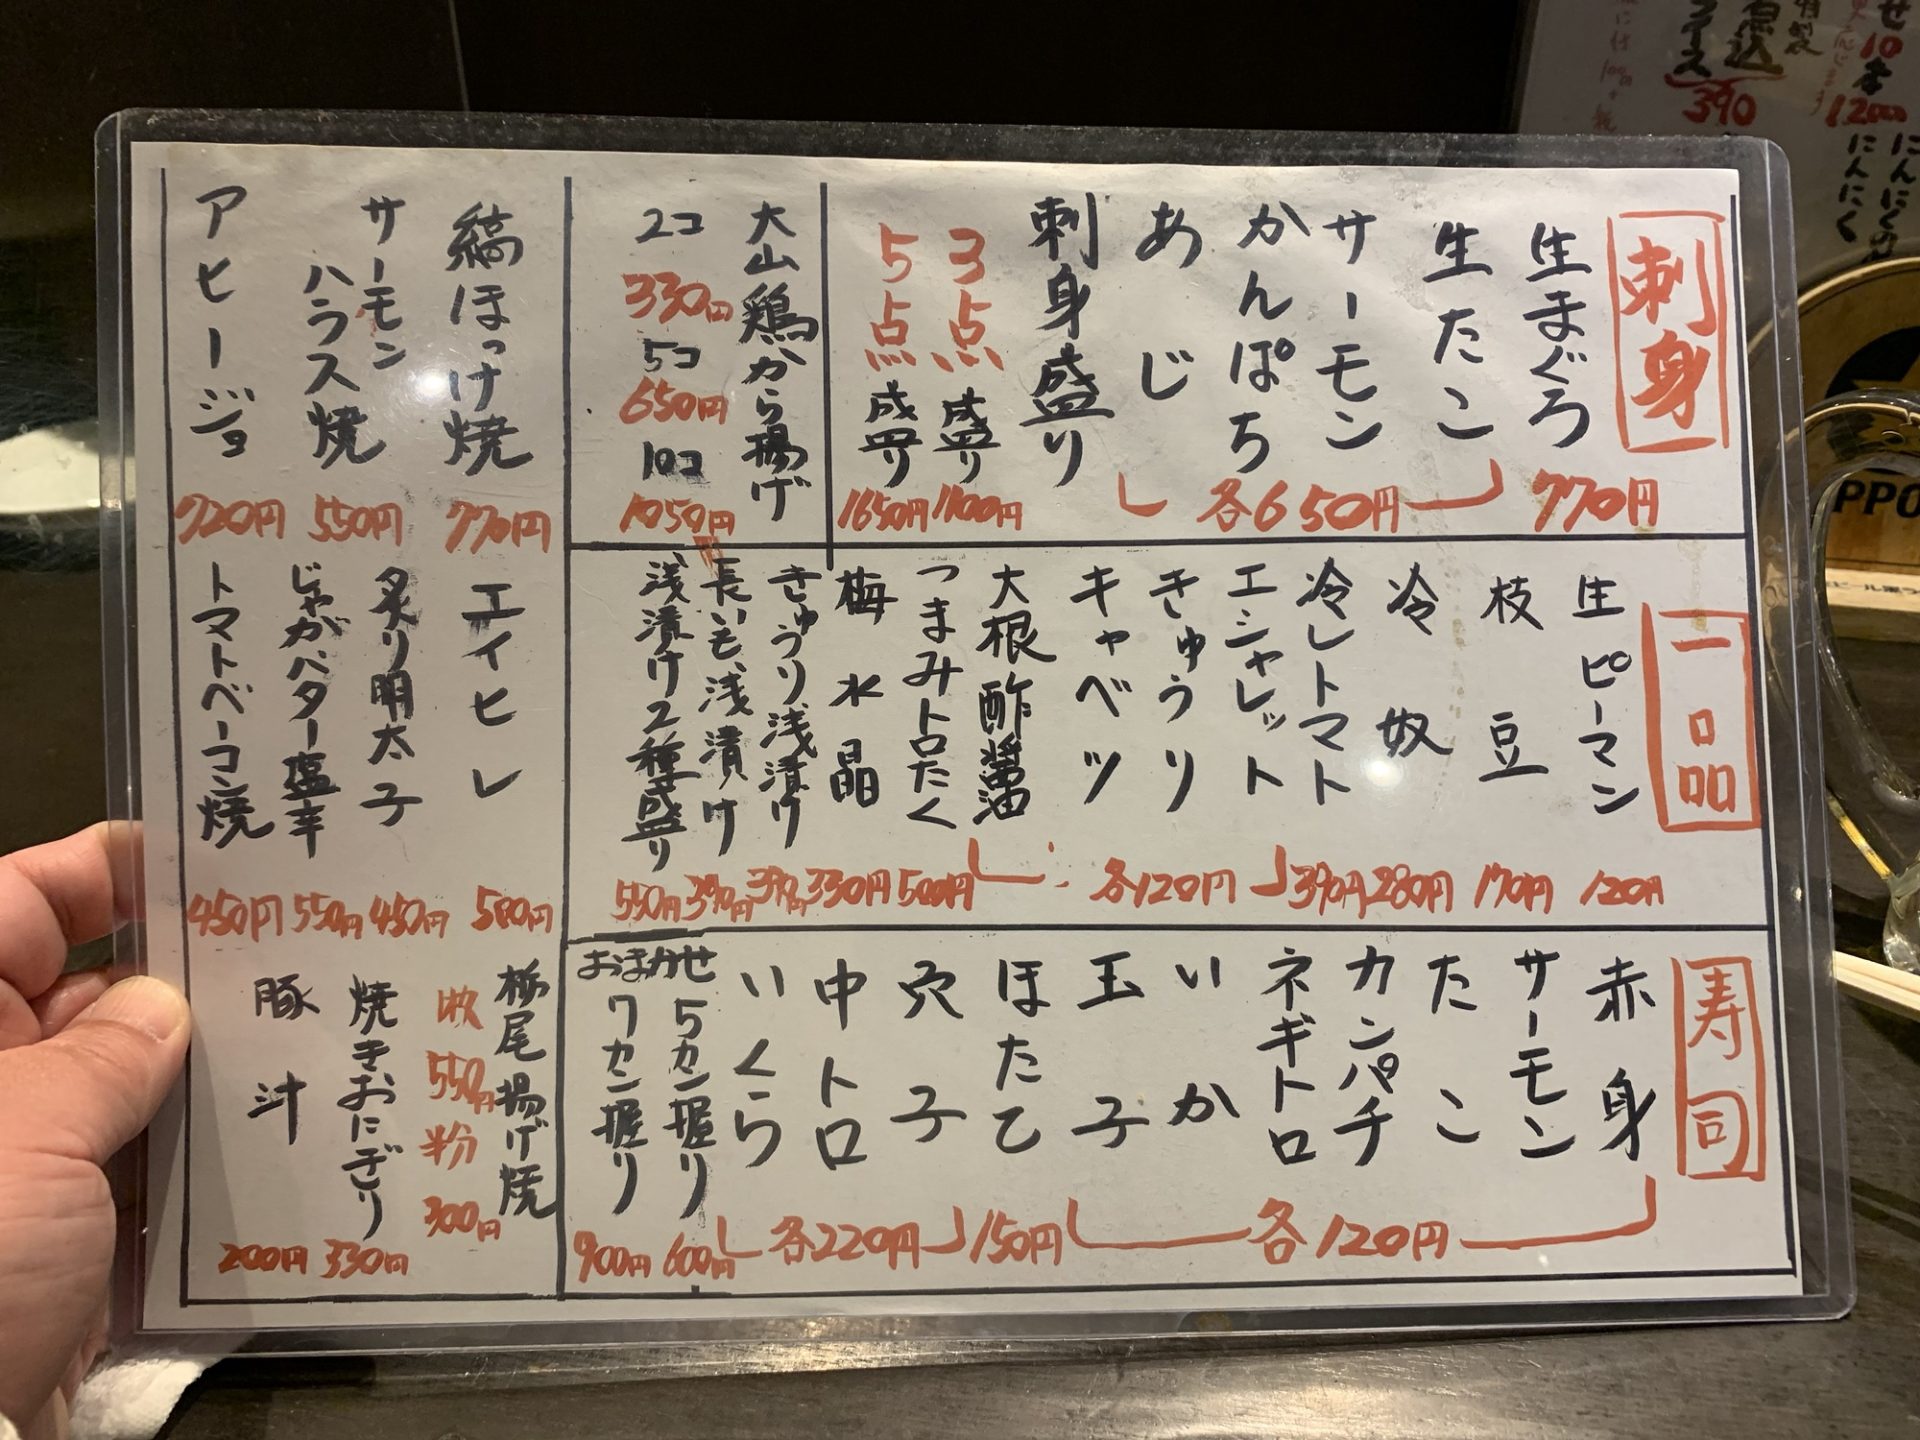 刺身
生まぐろ 770円
生たこ
サーモン
かんぱち
あじ
各650円
刺身盛り
3点盛り 1100円
5点盛り 1650円
大山鶏から揚げ
2コ
330円
5コ
650円
10コ
1050円
縞ほっけ焼 770円
サーモン
ハラス焼 550円
アヒージョ 720円
一品
生ピーマン 120円
枝豆 170円
冷奴 280円
冷しトマト 390円
エシャレット
きゅうり
キャベツ
大根酢醤油
各120円
つまみトロたく 500円
梅水晶 330円
きゅうり浅漬け 390円
長いも浅漬け 390円
浅漬け2種盛り 550円
エイヒレ 580円
炙り明太子 450円
じゃがバター塩辛 550円
トマトベーコン焼 450円
寿司
赤身
サーモン
たこ
カンパチ
ネギトロ
いか
玉子
各120円
ほたて 150円
穴子
中トロ
いくら
各220円
おまかせ
5カン握り 600円
7カン握り 900円
栃尾揚げ焼
550円
300円
焼きおにぎり 330円
豚汁 200円
せ10本
1200
にんにくの
にんにく
特製
煮込
390
PPO